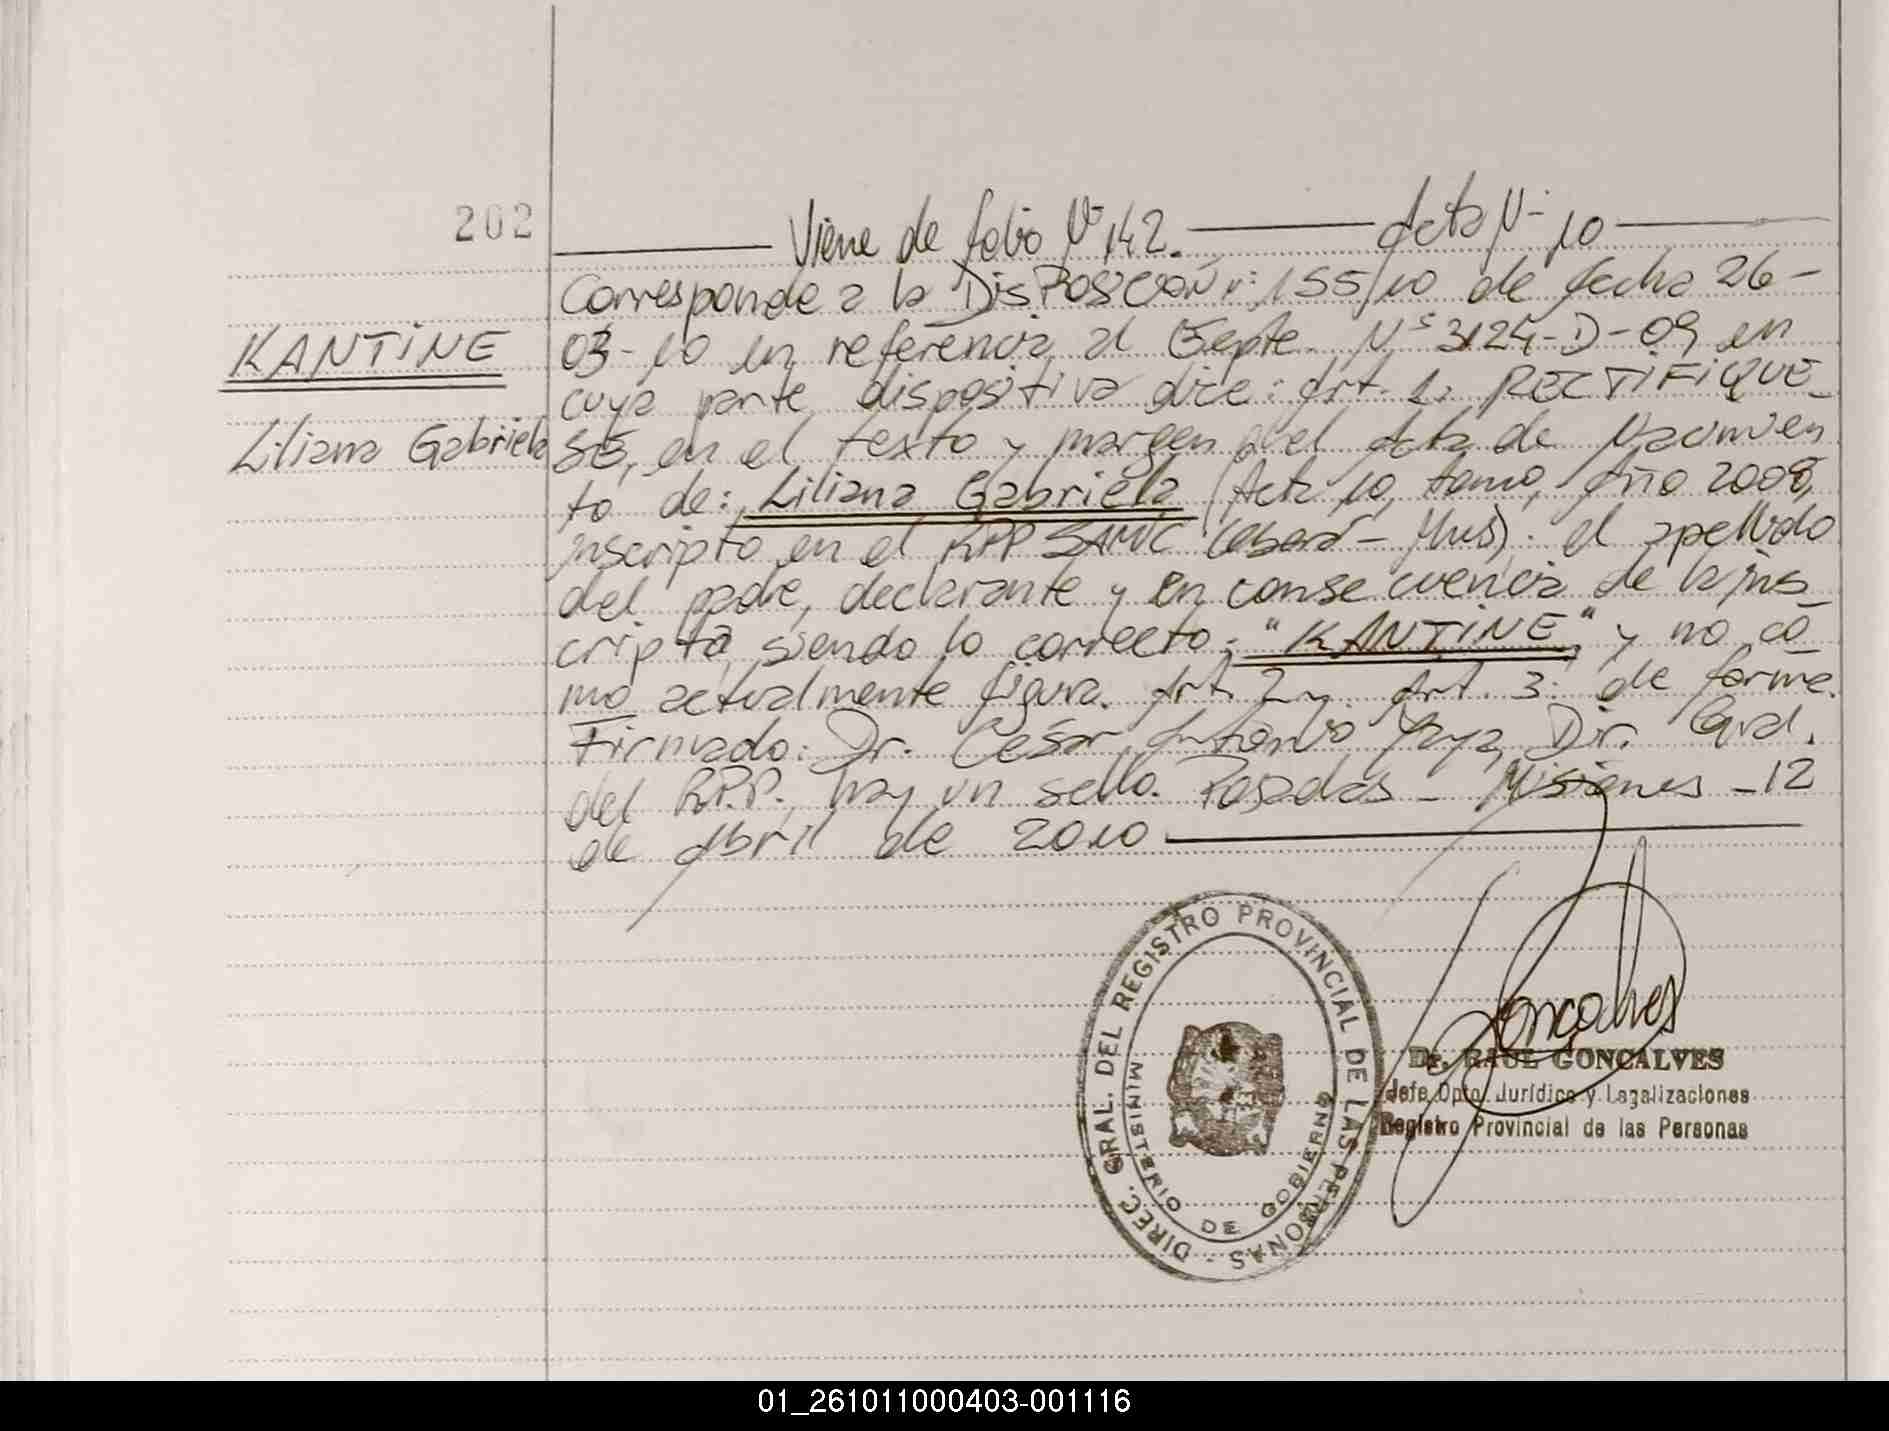 202
Viene de folio Nº 142. Acta Nº 10
KANTINE
Liliana Gabriela
Corresponde a la DisPosición Nº: 155/10 de fecha 26-
03-10 en referencia al Expte. Nº 3124-D-09 en
cuya parte dispositiva dice: Art. 1: RECTIFIQUE
SE, en el texto y margen del Acta de Nacimien
to de: Liliana Gabriela (Acta 10, tomo, Año 2008,
inscripto en el RPP SAMIC - Mnes). el apellido
del padre, declarante y en conse cuencia de la ins
cripta siendo lo correcto: "KANTINE" y no co
mo actualmente figura. Art. 2 y Art. 3: de forma.
Firmado: Dr. César Antonio Dir. Gral.
del R.P.P., hay un sello. Posadas - Misiones - 12
de Abril de 2010
DIREC. GRAL. DEL REGISTRO PROVINCIAL DE LAS PERSONAS -
MINISTERIO DE GOBIERNO
Goncalves
Dr. RAUL GONCALVES
Jefe Dpto. Jurídico y Legalizaciones
Registro Provincial de las Personas
01_261011000403-001116